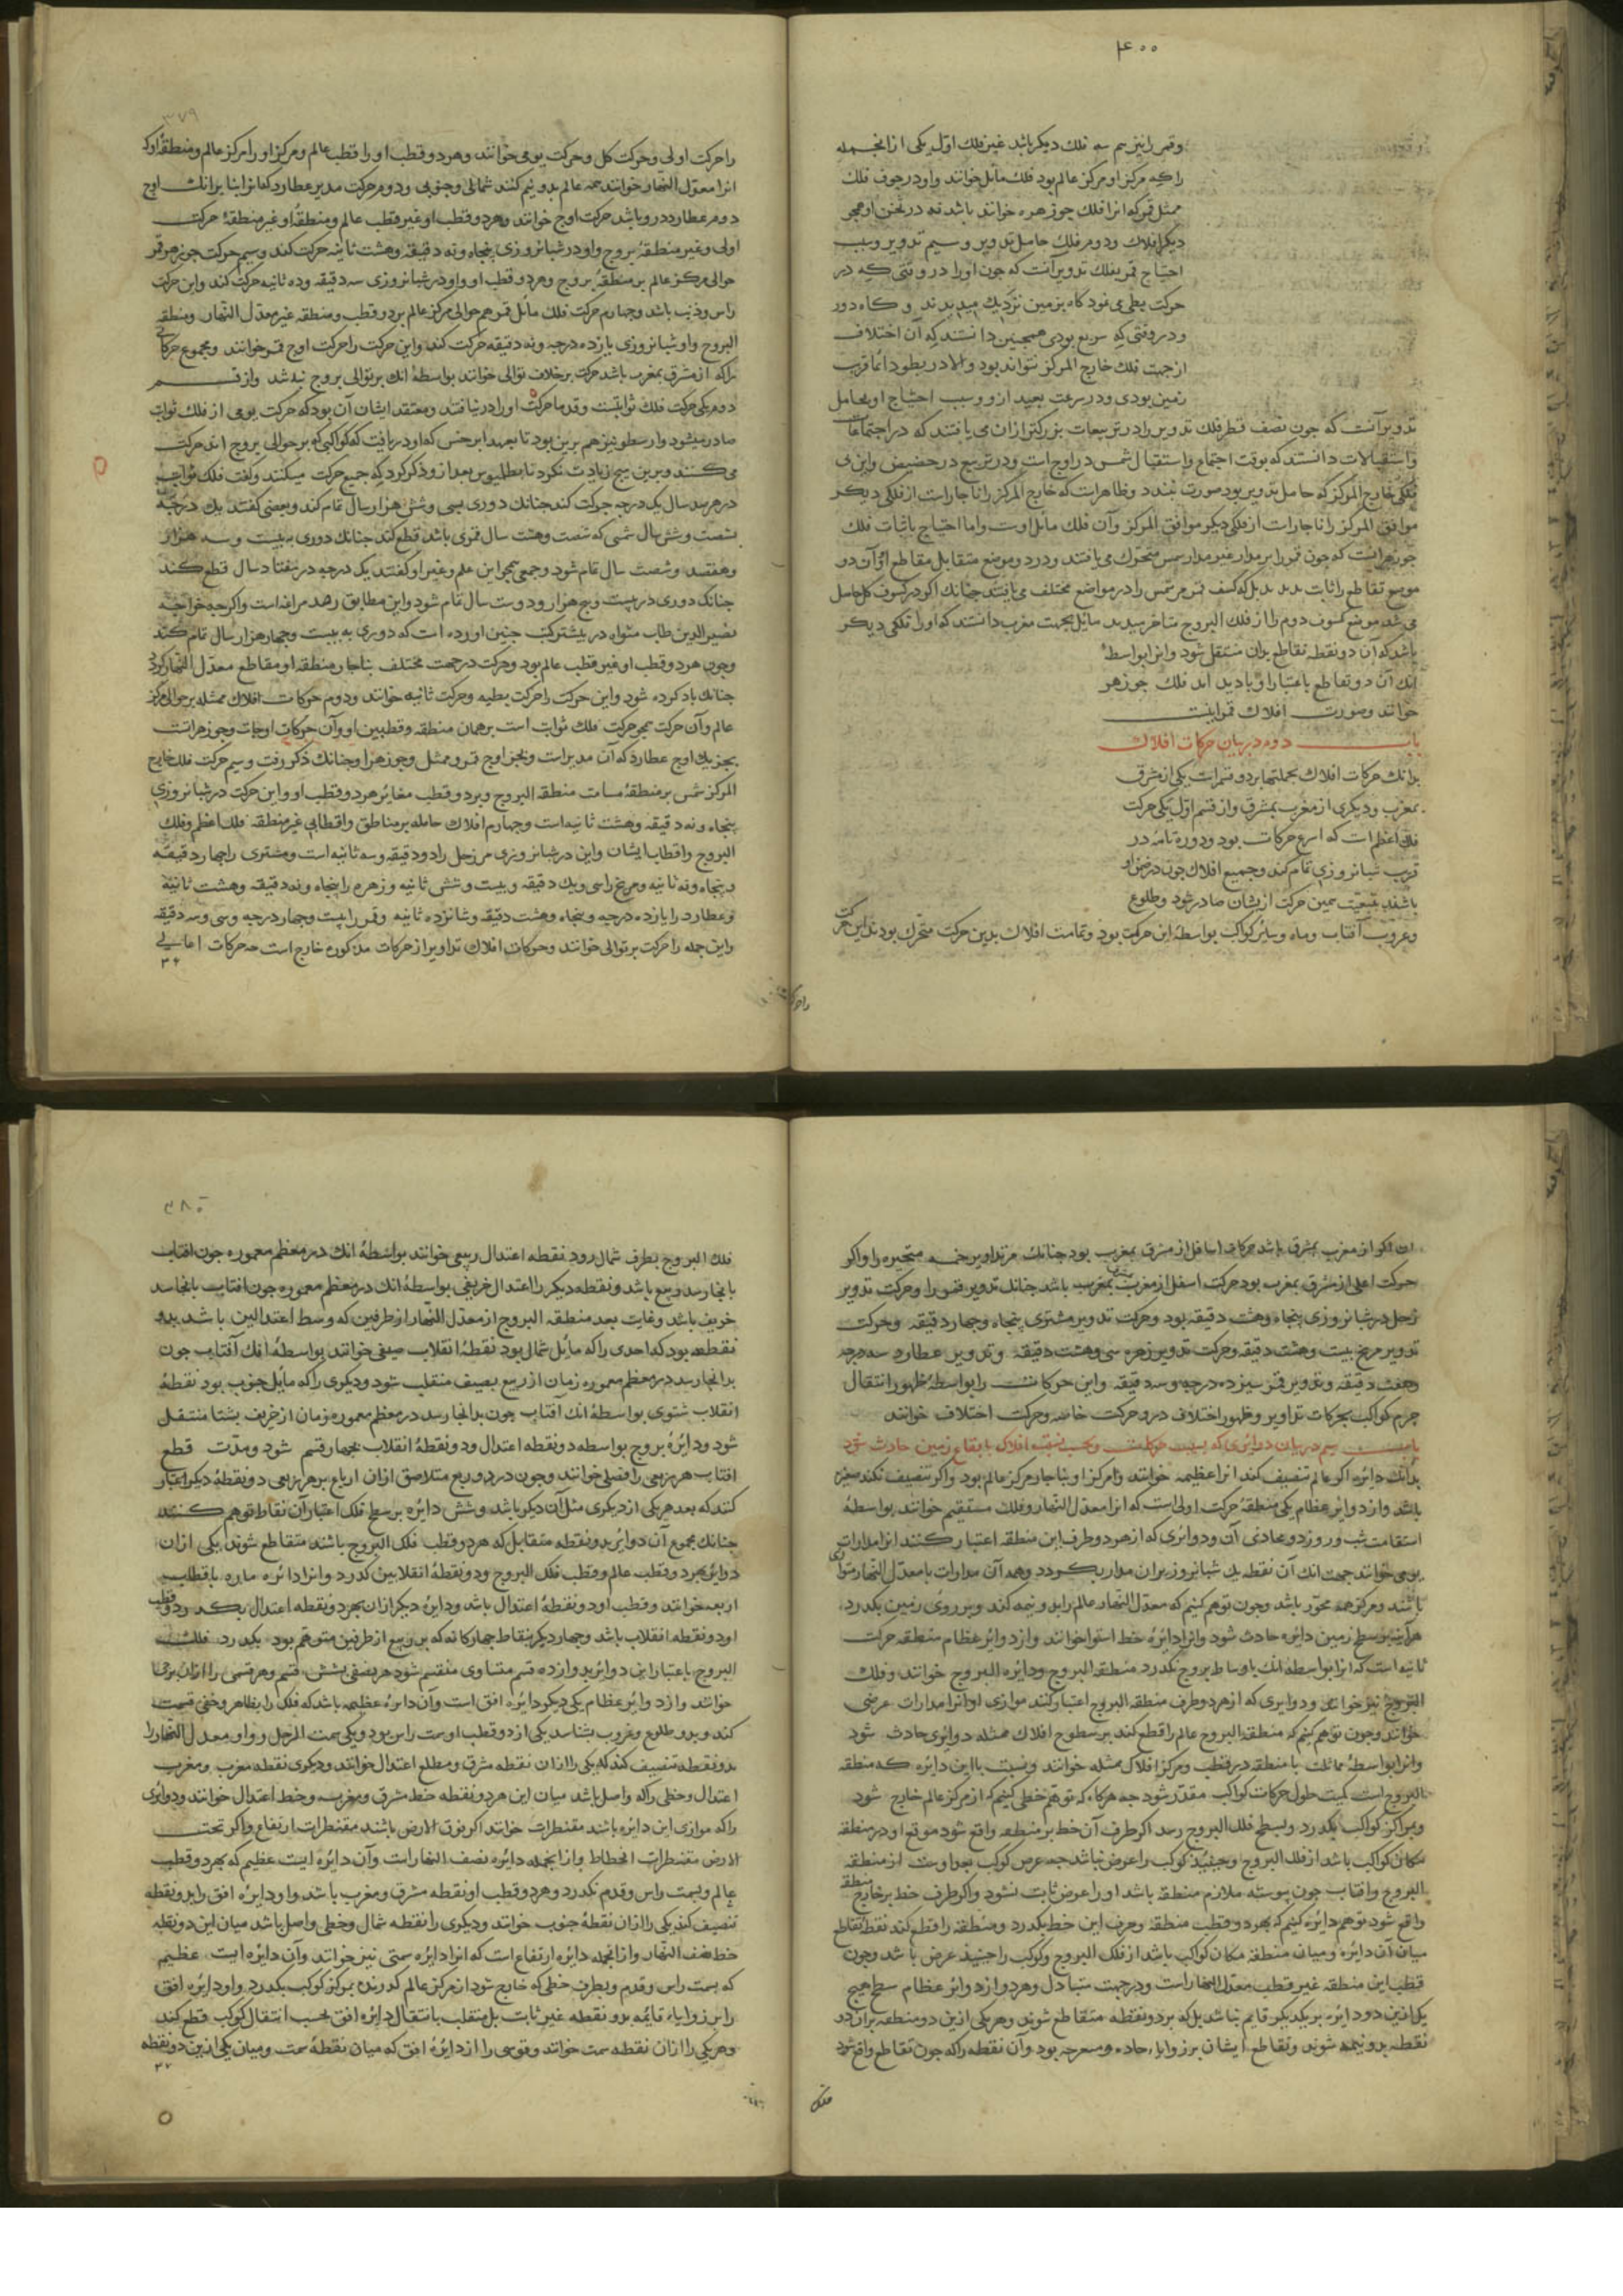 ۴۰۰
وقمر را نیز هم سه فلک دیگر باشد غیر فلک اول یکی ازانجمله
را که مرکز او مرکز عالم بود فلک مائل خوانند واو در جوف فلک
ممثل قمر که انرا فلک جوزهر خوانند باشد نه در ثخن او همچو
دیگر افلاک ودوم فلک حامل تدویر وسیم تدویر وسبب
احتیاج قمر بفلک تدویر آنست که چون او را در وقتی که در
حرکت بطی می نمود کاه بزمین نزدیک میدیدند و کاه دور
ودر وقتی که سریع بودی همچنین دانستند که آن اختلاف
از جهت فلک خارج المرکز نتواند بود والا در بطو دائما قریب
زمین بودی ودر سرعت بعید ازو وسبب احتیاج او بحامل
تدویر آنست که چون نصف قطر فلک تدویر را در تربیعات بزرکتر ازان می یافتند که در اجتماعات
واستقبالات دانستند که بوقت اجتماع واستقبال شمس در اوج است ودر تربیع در حضیض واین بی
فلکی خارج المرکز که حامل تدویر بود صورت نبندد وظاهر است که خارج المرکز را ناچار است از فلکی دیکر
موافق المرکز را ناچار است از فلکی دیکر موافق المرکز وآن فلک مائل اوست واما احتیاج باثبات فلک
جوزهر آنست که چون قمر را بر مدار غیر مدار شمس متحرک می یافتند ودر دو موضع متقابل مقاطع او آن دو
موضع تقاطع را ثابت ندیدند بل که کسف قمر مر شمس را در مواضع مختلف می یافتند چنانک اکر در کسوف کل حاصل
می شد موضع کسوف دوم را از فلک البروج متاخر میدیدند مائل بجهت مغرب دانستند که او را فلکی دیکر
باشد که آن دو نقطه تقاطع بدان منتقل شود وانرا بواسطهٔ
انک آن دو تقاطع باعتبار او بادید اند فلک جوزهر
خوانند وصورت افلاک قمر اینست
باب دوم در بیان حرکات افلاک
بدانک حرکات افلاک بجملتها بر دو قسم است یکی از مشرق
بمغرب ودیکری از مغرب بمشرق واز قسم اول یکی حرکت
فلک اعظم است که اسرع حرکات بود ودوره تامه در
قرب شبانروزی تمام کند وجمیع افلاک چون در ضمن او
باشند بتبعیت همین حرکت ازیشان صادر شود وطلوع
وغروب آفتاب وماه وسایر کواکب بواسطهٔ این حرکت بود وتمامت افلاک بدین حرکت متحرک بودند این حرکت
۳۷۹
را حرکت اولی وحرکت کل وحرکت یومی خوانند وهر دو قطب او را قطب عالم ومرکز او را مرکز عالم ومنطقهٔ او که
انرا معدل النهار خوانند همه عالم بدو نیم کند شمالی وجنوبی ودوم حرکت مدیر عطارد که انرا بنا برانک اوج
دوم عطارد درو باشد حرکت اوج خوانند وهر دو قطب او غیر قطب عالم ومنطقهٔ او غیر منطقهٔ حرکت
اولی وغیر منطقهٔ بروج واو در شبانروزی پنجاه ونه دقیقه وهشت ثانیه حرکت کند وسیم حرکت جوزهر قمر
حوالی مرکز عالم بر منطقهٔ بروج وهر دو قطب او واو در شبانروزی سه دقیقه وده ثانیه حرکت کند واین حرکت
راس وذنب باشد وچهارم حرکت فلک مائل قمر هم حوالی مرکز عالم بر دو قطب ومنطقه غیر معدل النهار ومنطقه
البروج واو شبانروزی یازده درجه ونه دقیقه حرکت کند واین حرکت را حرکت اوج قمر خوانند ومجموع حرکاتی
را که از مشرق بمغرب باشد حرکت بر خلاف توالی خوانند بواسطهٔ انک بر توالی بروج نباشد واز قسم
دوم یکی حرکت فلک ثوابتست وقدما حرکت او را در نیافتند ومعتقد ایشان آن بود که حرکت یومی از فلک ثوابت
صادر میشود وارسطو نیز هم برین بود تا بعهد ابرخس که او دریافت که کواکبی که بر حوالی بروج اند حرکت
می کنند وبرین هیچ زیادت نکرد تا بطلمیوس بعد ازو ذکر کرد که جمیع حرکت میکنند وکفت فلک ثوابت
در هر صد سال یک درجه حرکت کند چنانک دوری بسی وشش هزار سال تمام کند وبعضی کفتند یک درجه
بشصت وشش سال شمسی که شصت وهشت سال قمری باشد قطع کند چنانک دوری به بیست وسه هزار
وهفتصد وشصت سال تمام شود وجمعی همچو ابن اعلم وغیر او کفتند یک درجه در هفتاد سال قطع کند
چنانک دوری در بیست وپنج هزار ودویست سال تمام شود واین مطابق رصد مراغه است واکر چه خواجه
نصیر الدین طاب مثواه در بیشتر کتب چنین اورده است که دوری به بیست وچهار هزار سال تمام کند
وچون هر دو قطب او غیر قطب عالم بود وحرکت در جهت مختلف بناچار منطقه او مقاطع معدل النهار کردد
چنانک یاد کرده شود واین حرکت را حرکت بطیه وحرکت ثانیه خوانند ودوم حرکات افلاک ممثله بر حوالی مرکز
عالم وآن حرکت همچو حرکت فلک ثوابت است بر همان منطقه وقطبین او وآن حرکات اوجات وجوزهراتست
بجز یک اوج عطارد که آن مدیر است وبجز اوج قمر وممثل وجوزهر او چنانک ذکر رفت وسیم حرکت فلک خارج
المرکز شمس بر منطقهٔ مسامت منطقه البروج وبر دو قطب مغایر هر دو قطب او واین حرکت در شبانروزی
پنجاه ونه دقیقه وهشت ثانیه است وچهارم افلاک حامله بر مناطق واقطابی غیر منطقه فلک اعظم وفلک
البروج واقطاب ایشان واین در شبانروزی مر زحل را دو دقیقه وسه ثانیه است ومشتری را چهار دقیقه
وپنجاه ونه ثانیه ومریخ را سی ویک دقیقه وبیست وشش ثانیه وزهره را پنجاه ونه دقیقه وهشت ثانیه
وعطارد را یازده درجه وپنجاه وهشت دقیقه وشانزده ثانیه وقمر را بیست وچهار درجه وسی وسه دقیقه
واین جمله را حرکت بر توالی خوانند وحرکات افلاک تداویر از حرکات مذکوره خارج است چه حرکات اعالی
ان اکر از مغرب بمشرق باشد حرکات اسافل از مشرق بمغرب بود چنانک مر تداویر خمسه متحیره را واکر
حرکت اعلی از مشرق بمغرب بود حرکت اسفل از مغرب بمشرق باشد چنانک تدویر قمر را وحرکت تدویر
زحل در شبانروزی پنجاه وهفت دقیقه بود وحرکت تدویر مشتری پنجاه وچهار دقیقه وحرکت
تدویر مریخ بیست وهشت دقیقه وحرکت تدویر زهره سی وهشت دقیقه وتدویر عطارد سه درجه
وهفت دقیقه وتدویر قمر سیزده درجه وسه دقیقه واین حرکات را بواسطهٔ ظهور انتقال
جرم کواکب بحرکات تداویر وظهور اختلاف درو حرکت خاصه وحرکت اختلاف خوانند
باب سیم در بیان دوایری که بسبب حرکات وبحسب نسبت افلاک با بقاع زمین حادث شود
بدانک دائره اکر عالم تنصیف کند انرا عظیمه خوانند ومرکز او بناچار مرکز عالم بود واکر تنصیف نکند صغیره
باشد واز دوایر عظام یکی منطقهٔ حرکت اولی است که انرا معدل النهار وفلک مستقیم خوانند بواسطهٔ
استقامت شب وروز در محاذی آن ودوائری که از هر دو طرف این منطقه اعتبار کنند انرا مدارات
یومی خوانند جهت انک آن نقطه یک شبانروز بران مدار بکردد وهمه آن مدارات با معدل النهار متوازی
باشند ومرکز همه محور باشد وچون توهم کنیم که معدل النهار عالم را بدو نیمه کند وبر روی زمین بکذرد
هراینه بر سطح زمین دائره حادث شود وانرا دائرهٔ خط استوا خوانند واز دوایر عظام منطقه حرکت
ثانیه است که انرا بواسطه انک باوساط بروج بکذرد منطقة البروج ودایره البروج خوانند وفلک
البروج نیز خوانند ودوایری که از هر دو طرف منطقه البروج اعتبار کنند موازی او انرا مدارات عرضی
خوانند وچون توهم کنیم که منطقه البروج عالم را قطع کند بر سطوح افلاک ممثله دوایری حادث شود
وانرا بواسطهٔ مماثلت با منطقه در قطب ومرکز افلاک ممثله خوانند ونسبت با این دائره که منطقه
البروج است کمیت طول حرکات کواکب مقدر شود چه هرکاه که توهم خطی کنیم که از مرکز عالم خارج شود
وبر مرکز کواکب بکذرد وبسطح فلک البروج رسد اکر طرف آن خط بر منطقه واقع شود موقع او در منطقه
مکان کواکب باشد از فلک البروج وحینئذ کوکب را عرض نباشد چه عرض کوکب بعد اوست از منطقه
البروج وافتاب چون پیوسته ملازم منطقه باشد او را عرض ثابت نشود واکر طرف خط بر خارج منطقه
واقع شود توهم دایره کنیم که بهر دو قطب منطقه وطرف این خط بکذرد ومنطقه را قطع کند نقطهٔ تقاطع
میان آن دایره ومیان منطقه مکان کواکب باشد از فلک البروج وکوکب را حینئذ عرض باشد وچون
قطب این منطقه غیر قطب معدل النهار است ودر جهت متبادل وهر دو از دوایر عظام سطح هیچ
یک ازین دو دایره بر یکدیکر قایم نباشد بل که بر دو نقطه متقاطع شوند وهر یکی ازین دو منطقه بران دو
نقطه بدو نیمه شوند وتقاطع ایشان بر زوایاء حاده ومنفرجه بود وآن نقطه را که چون تقاطع واقع شود
فلک
۳۸۰
فلک البروج بطرف شمال رود نقطه اعتدال ربیعی خوانند بواسطهٔ انک در معظم معموره چون افتاب
بانجا رسد ربیع باشد ونقطه دیکر را اعتدال خریفی بواسطهٔ انک در معظم معموره چون افتاب بانجا رسد
خریف باشد وغایت بعد منطقه البروج از معدل النهار از طرفین که وسط اعتدالین باشد بدو
نقطه بود که احدی را که مائل شمال بود نقطهٔ انقلاب صیفی خوانند بواسطهٔ انک آفتاب چون
بدانجا رسد در معظم معموره زمان از ربیع بصیف منقلب شود ودیکری را که مایل جنوب بود نقطهٔ
انقلاب شتوی بواسطهٔ انک افتاب چون بدانجا رسد در معظم معموره زمان از خریف بشتا منتقل
شود ودایرهٔ بروج بواسطه دو نقطه اعتدال ودو نقطهٔ انقلاب بچهار قسم شود ومدت قطع
افتاب هر ربعی را فصلی خوانند وچون در دو ربع متلاصق ازان ارباع بر هر ربعی دو نقطهٔ دیکر اعتبار
کنند که بعد هر یکی از دیکری مثل آن دیکر باشد وشش دایره بر سطح فلک اعتبار آن نقاط توهم کنند
چنانک مجموع آن دوایر بدو نقطه متقابل که هر دو قطب فلک البروج باشند متقاطع شوند یکی ازان
دوایر بهر دو قطب عالم وقطب فلک البروج ودو نقطهٔ انقلابین کذرد وانرا دائره ماره باقطاب
اربعه خوانند وقطب او دو نقطهٔ اعتدال باشد ودایرهٔ دیکر ازان بهر دو نقطه اعتدال بکذرد ودو قطب
او دو نقطه انقلاب باشد وچهار دیکر بنقاط چهارکانه که بر ربع از طرفین متوهم بود بکذرد فلک
البروج باعتبار این دوایر بدوازده قسم متساوی منقسم شود هر نصفی بشش قسم وهر قسمی را ازان برجی
خوانند واز دوایر عظام یکی دیکر دایره افق است وآن دایرهٔ عظیمه باشد که فلک را بظاهر وخفی قسمت
کند وبدو طلوع وغروب بشناسند یکی از دو قطب او سمت راس بود ویکی سمت الرجل واو معدل النهار را
بدو نقطه تنصیف کند که یکی را ازان نقطه مشرق ومطلع اعتدال خوانند ودیکری نقطه مغرب ومغرب
اعتدال وخطی را که واصل باشد میان این هر دو نقطه خط مشرق ومغرب وخط اعتدال خوانند ودوایری
را که موازی این دایره باشند مقنطرات خوانند اکر فوق الارض باشند مقنطرات ارتفاع واکر تحت
الارض مقنطرات انحطاط وازانجمله دایره نصف النهار است وآن دایره ایست عظیم که بهر دو قطب
عالم وبسمت راس وقدم بکذرد وهر دو قطب او نقطه مشرق ومغرب باشد واو دایره افق را بدو نقطه
تنصیف کند یکی را ازان نقطهٔ جنوب خوانند ودیکری را نقطه شمال وخطی واصل باشد میان این دو نقطه
خط نصف النهار وازانجمله دایره ارتفاع است که انرا دایره سمتی نیز خوانند وآن دایره ایست عظیم
که بسمت راس وقدم وبطرف خطی که خارج شود از مرکز عالم کذرنده بمرکز کوکب بکذرد واو دایره افق
را بر زوایاء قایمه بدو نقطه غیر ثابت بل منتقلب بانتقال دایره افق بحسب انتقال کوکب قطع کند
وهر یکی را ازان نقطه سمت خوانند وقوسی را از دایرهٔ افق که میان نقطهٔ سمت ومیان یکی ازین دو نقطه